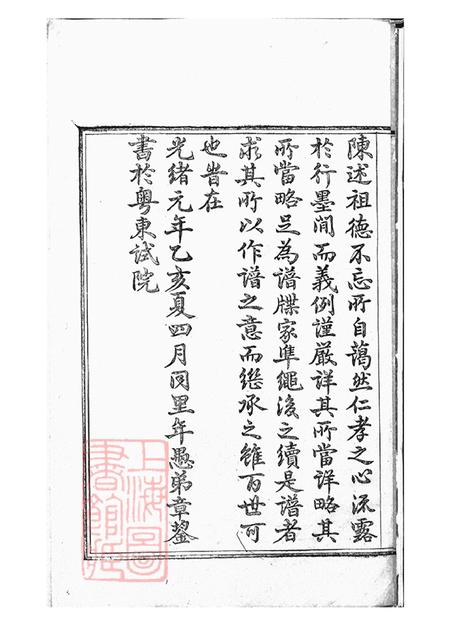 陳述祖德不忘所自藹然仁孝之心流露
於行墨間而義例謹嚴詳其所當詳略其
所當略足為譜牒家準繩後之續是譜者
求其所以作譜之意而繼承之雖百世可
也時在
光緒元年乙亥夏四月同里年愚弟章鋆
書於粵東試院
上海圖
書館藏